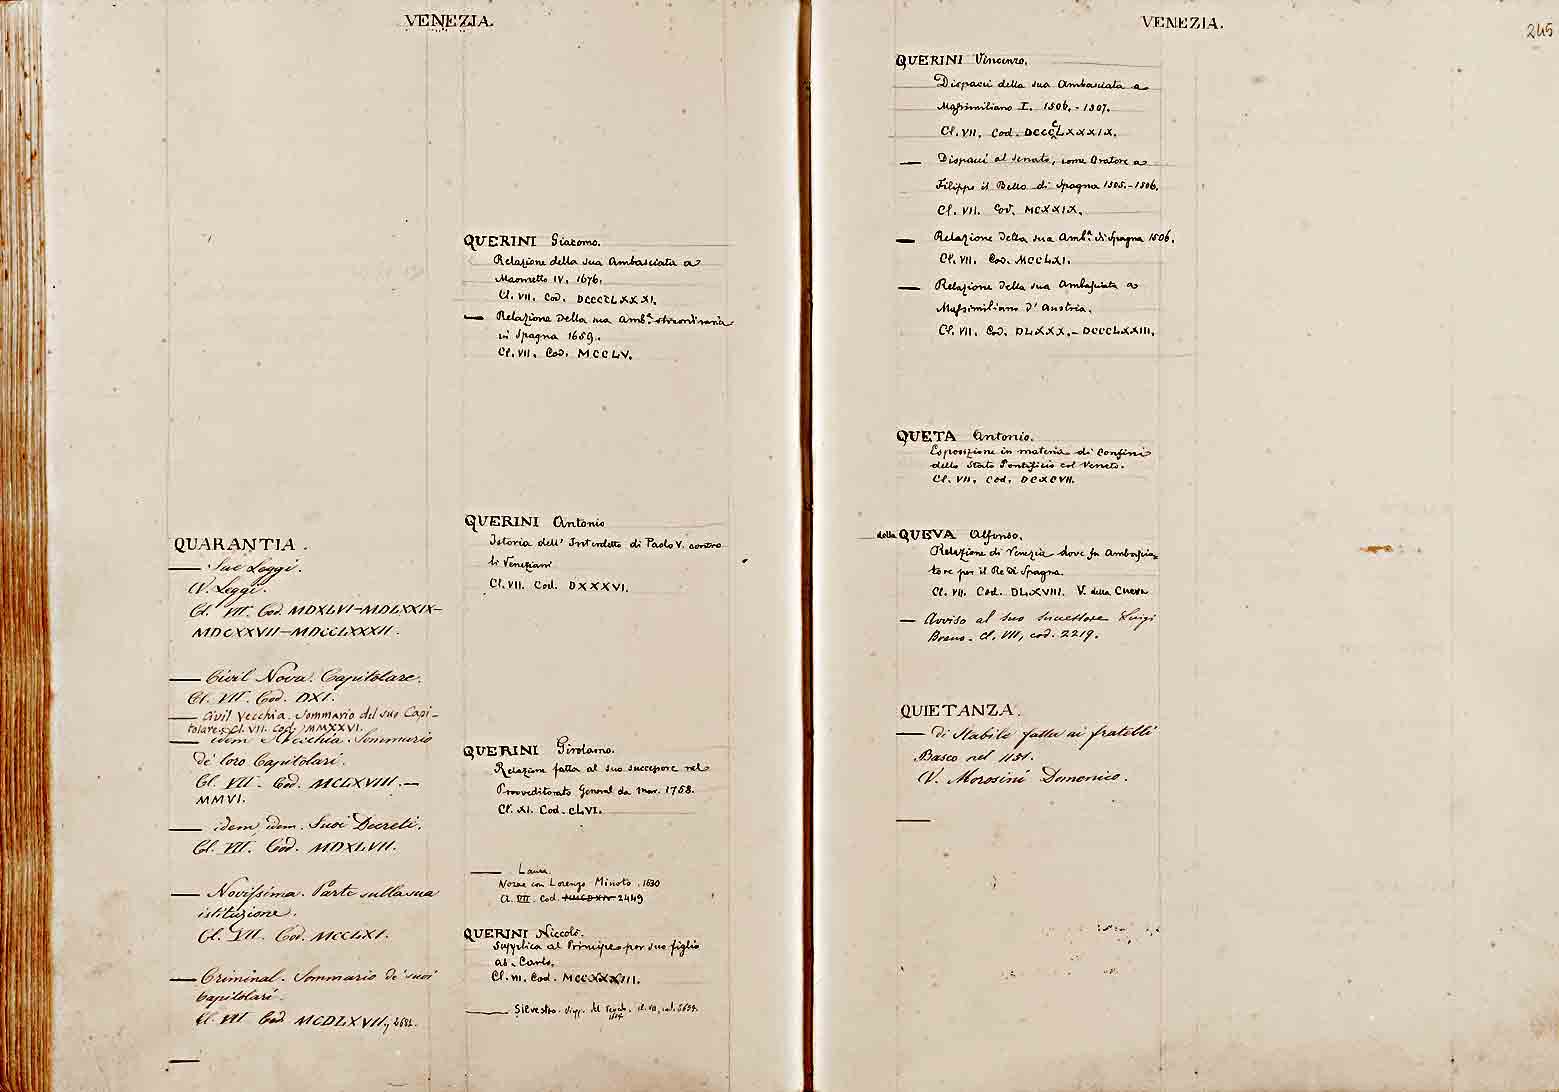 VENEZIA.
QUARANTIA.
— Sue Leggi.
V. Leggi.
Cl. VII. Cod. MDXLVI–MDLXXIX–
MDCXXVII–MDCCLXXXII.
— Civil Nova. Capitolare.
Cl. VII. Cod. DXI.
— Civil Vecchia. Sommario del suo Capi-
tolare. Cl. VII. Cod. MMXXVI.
— idem Vecchia. Sommario
de' loro Capitolari.
Cl. VII. Cod. MCLXVIII.—
MMVI.
— idem, idem. Suoi Decreti.
Cl. VII. Cod. MDXLVII.
— Novissima. Parte sulla sua
istituzione.
Cl. VII. Cod. MCCLXI.
— Criminal. Sommario de' suoi
Capitolari.
Cl. VII Cod. MCDLXVII,
—
QUERINI Giacomo.
Relazione della sua Ambasciata a
Maometto IV. 1676.
Cl. VII. Cod. DCCCCLXXXI.
— Relazione della sua Amb.ª straordinaria
in Spagna 1659.
Cl. VII. Cod. MCCLV.
QUERINI Antonio
Istoria dell' Interdetto di Paolo V. contro
li Veneziani
Cl. VII. Cod. DXXXVI.
QUERINI Girolamo.
Relazione fatta al suo successore nel
Provveditorato General da Mar. 1758.
Cl. XI. Cod. CLVI.
— Laura.
Nozze con Lorenzo Minoto. 1630
Cl. VII. Cod. 2449
QUERINI Niccolò.
Supplica al Principe per suo figlio
ab. Carlo.
Cl. VII. Cod. MCCXXXIII.
— Silvestro.
VENEZIA.
245
QUERINI Vincenzo.
Dispacci della sua Ambasciata a
Massimiliano I. 1506.-1507.
Cl. VII. Cod. DCCCCLXXXIX.
— Dispacci al Senato, come Oratore a
Filippo il Bello di Spagna 1505.-1506.
Cl. VII. Cod. MCXXIX.
— Relazione della sua Amb.ª di Spagna 1506.
Cl. VII. Cod. MCCLXI.
— Relazione della sua Ambasciata a
Massimiliano d'Austria.
Cl. VII. Cod. DLXXX.–DCCCLXXIII.
QUETA Antonio.
Esposizione in materia di confini
dello Stato Pontificio col Veneto.
Cl. VII. Cod. DCXCVII.
della QUEVA Alfonso.
Relazione di Venezia dove fu Ambascia-
tore per il Re di Spagna.
Cl. VII. Cod. DLXVIII. V. della Cueva
— Avviso al suo successore Luigi
Bravo. Cl. VII, cod. 2219.
QUIETANZA.
— di Stabile fatta ai fratelli
Basco nel 1151.
V. Morosini Domenico.
—